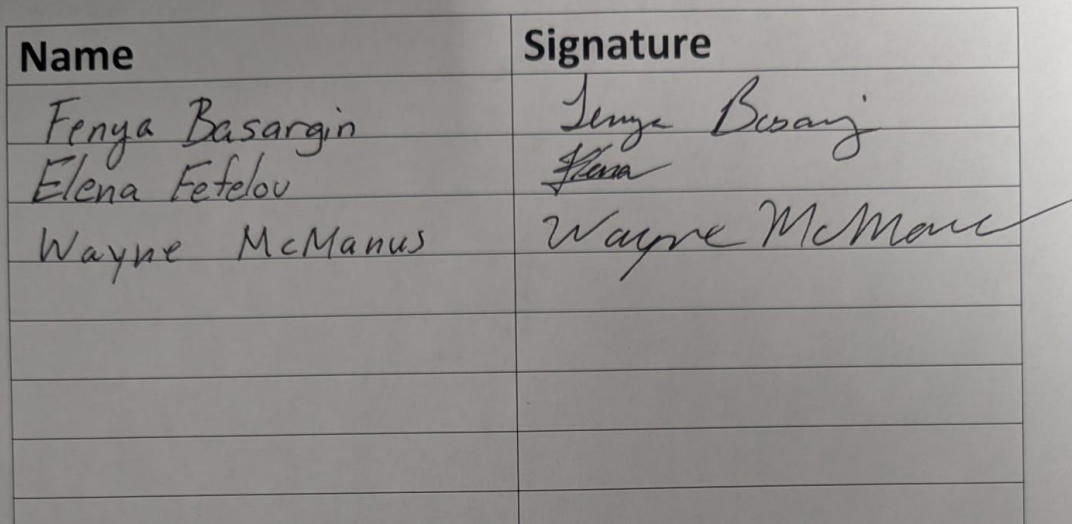 Name Signature
Fenya Basargin Fenya Basarg
Elena Fefelov Elena
Wayne McManus Wayne McManus